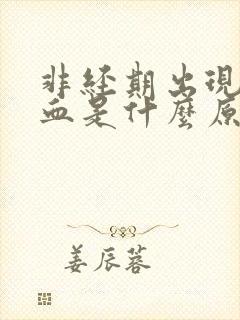 非經期出現
血是什麼原
姜辰蓉